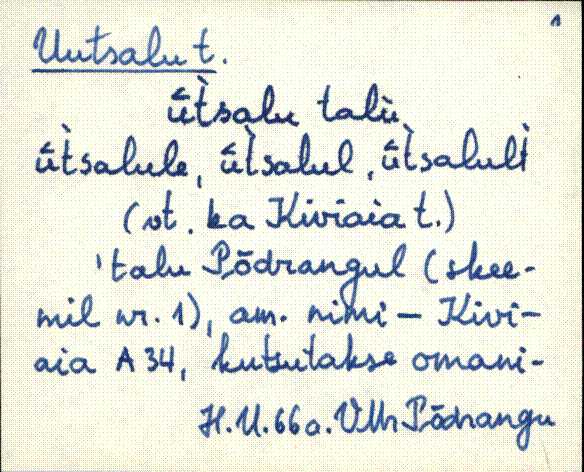 1
Uutsalu t.
ūt̀salu talù
ūt̀salule, ūt̀salul, ūt̀salult̀
(vt. ka Kiviaia t.)
'talu Põdrangul (skee-
mil nr. 1), am. nimi – Kivi-
aia A 34, kutsutakse omani-
H.U. 66a. VMr Põdrangu